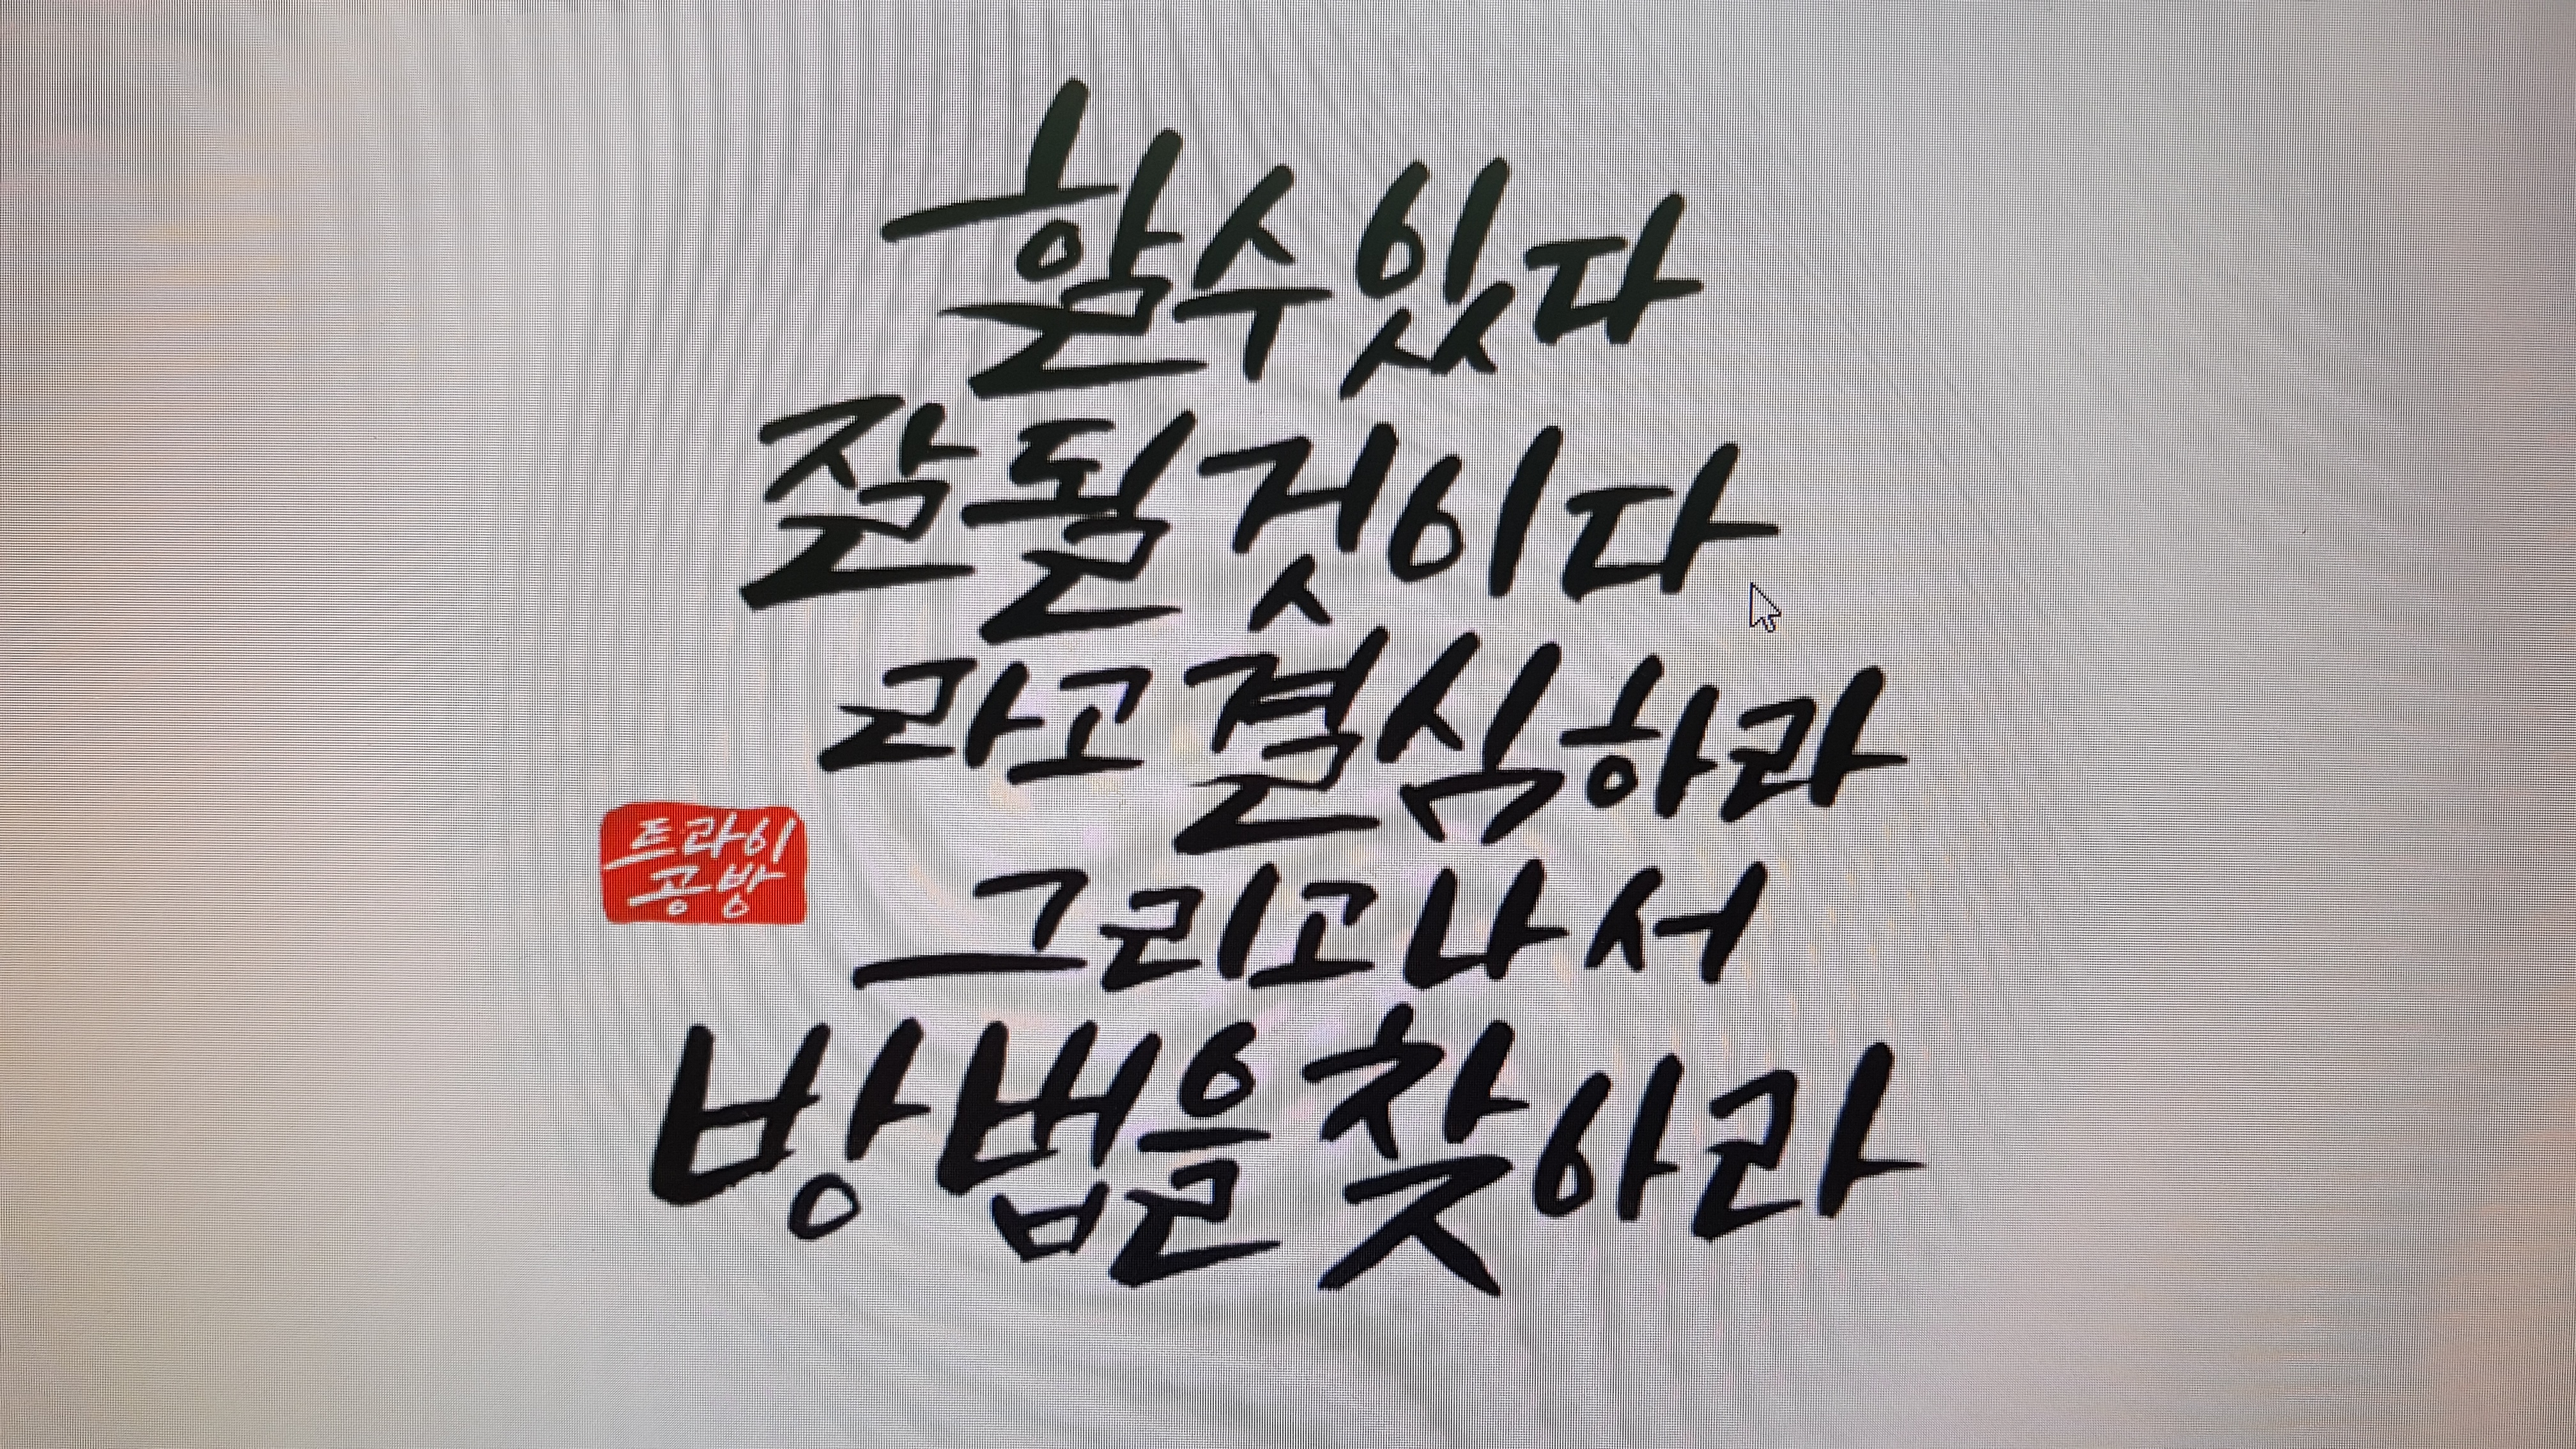 할수있다
잘될것이다
라고결식하라
트라이
공방
그리고나서
방법을찾아라